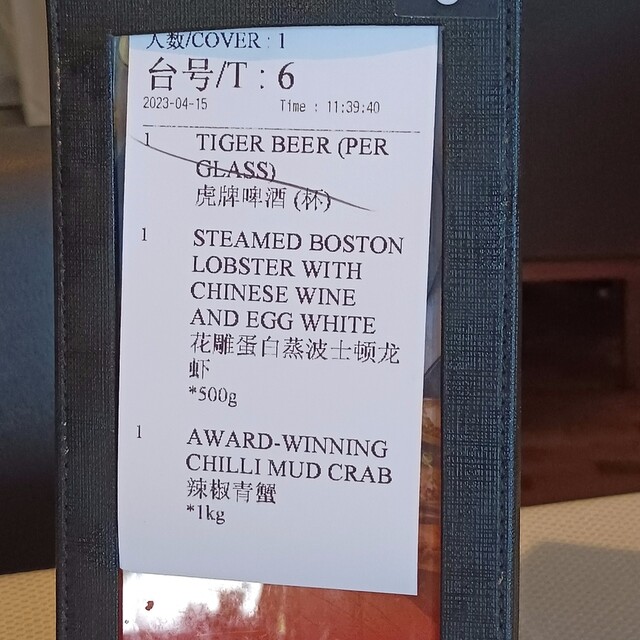 人数/COVER : 1
台号/T : 6
2023-04-15 Time : 11:39:40
1 TIGER BEER (PER
GLASS)
虎牌啤酒 (杯)
1 STEAMED BOSTON
LOBSTER WITH
CHINESE WINE
AND EGG WHITE
花雕蛋白蒸波士顿龙
虾
*500g
1 AWARD-WINNING
CHILLI MUD CRAB
辣椒青蟹
*1kg